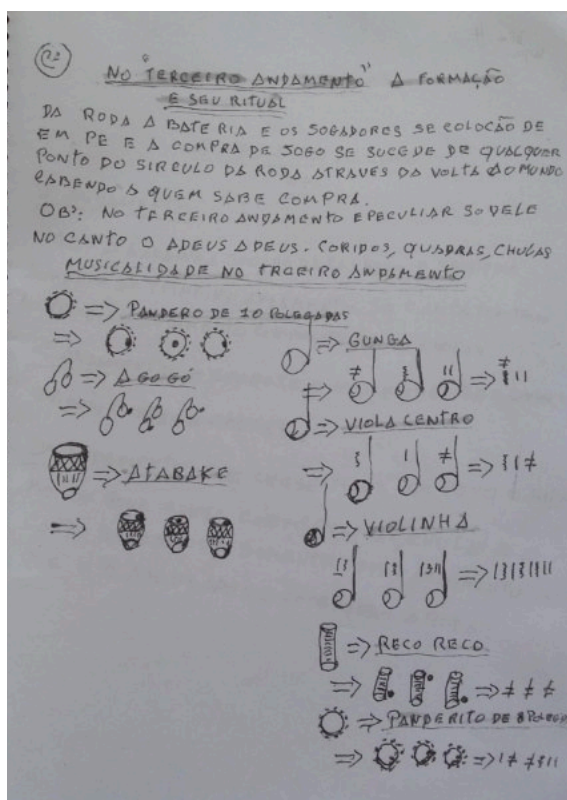 22
NO "TERCEIRO ANDAMENTO" A FORMAÇÃO
E SEU RITUAL
DA RODA A BATERIA E OS JOGADORES SE COLOCÃO DE
EM PE E A COMPRA DE JOGO SE SUCEDE DE QUALQUER
PONTO DO SIRCULO DA RODA ATRAVES DA VOLTA AO MUNDO
CABENDO A QUEM SABE COMPRA.
OBS: NO TERCEIRO ANDAMENTO E PECULIAR SO DELE
NO CANTO O ADEUS ADEUS. CORIDOS, QUADRAS, CHULAS
MUSICALIDADE NO TRCEIRO ANDAMENTO
=> PANDERO DE 10 POLEGADAS
=> GUNGA
=> AGOGÓ
=> VIOLA CENTRO
=> ATABAKE
=> VIOLINHA
=> RECO RECO
=> PANDERITO DE 8 POLEGA